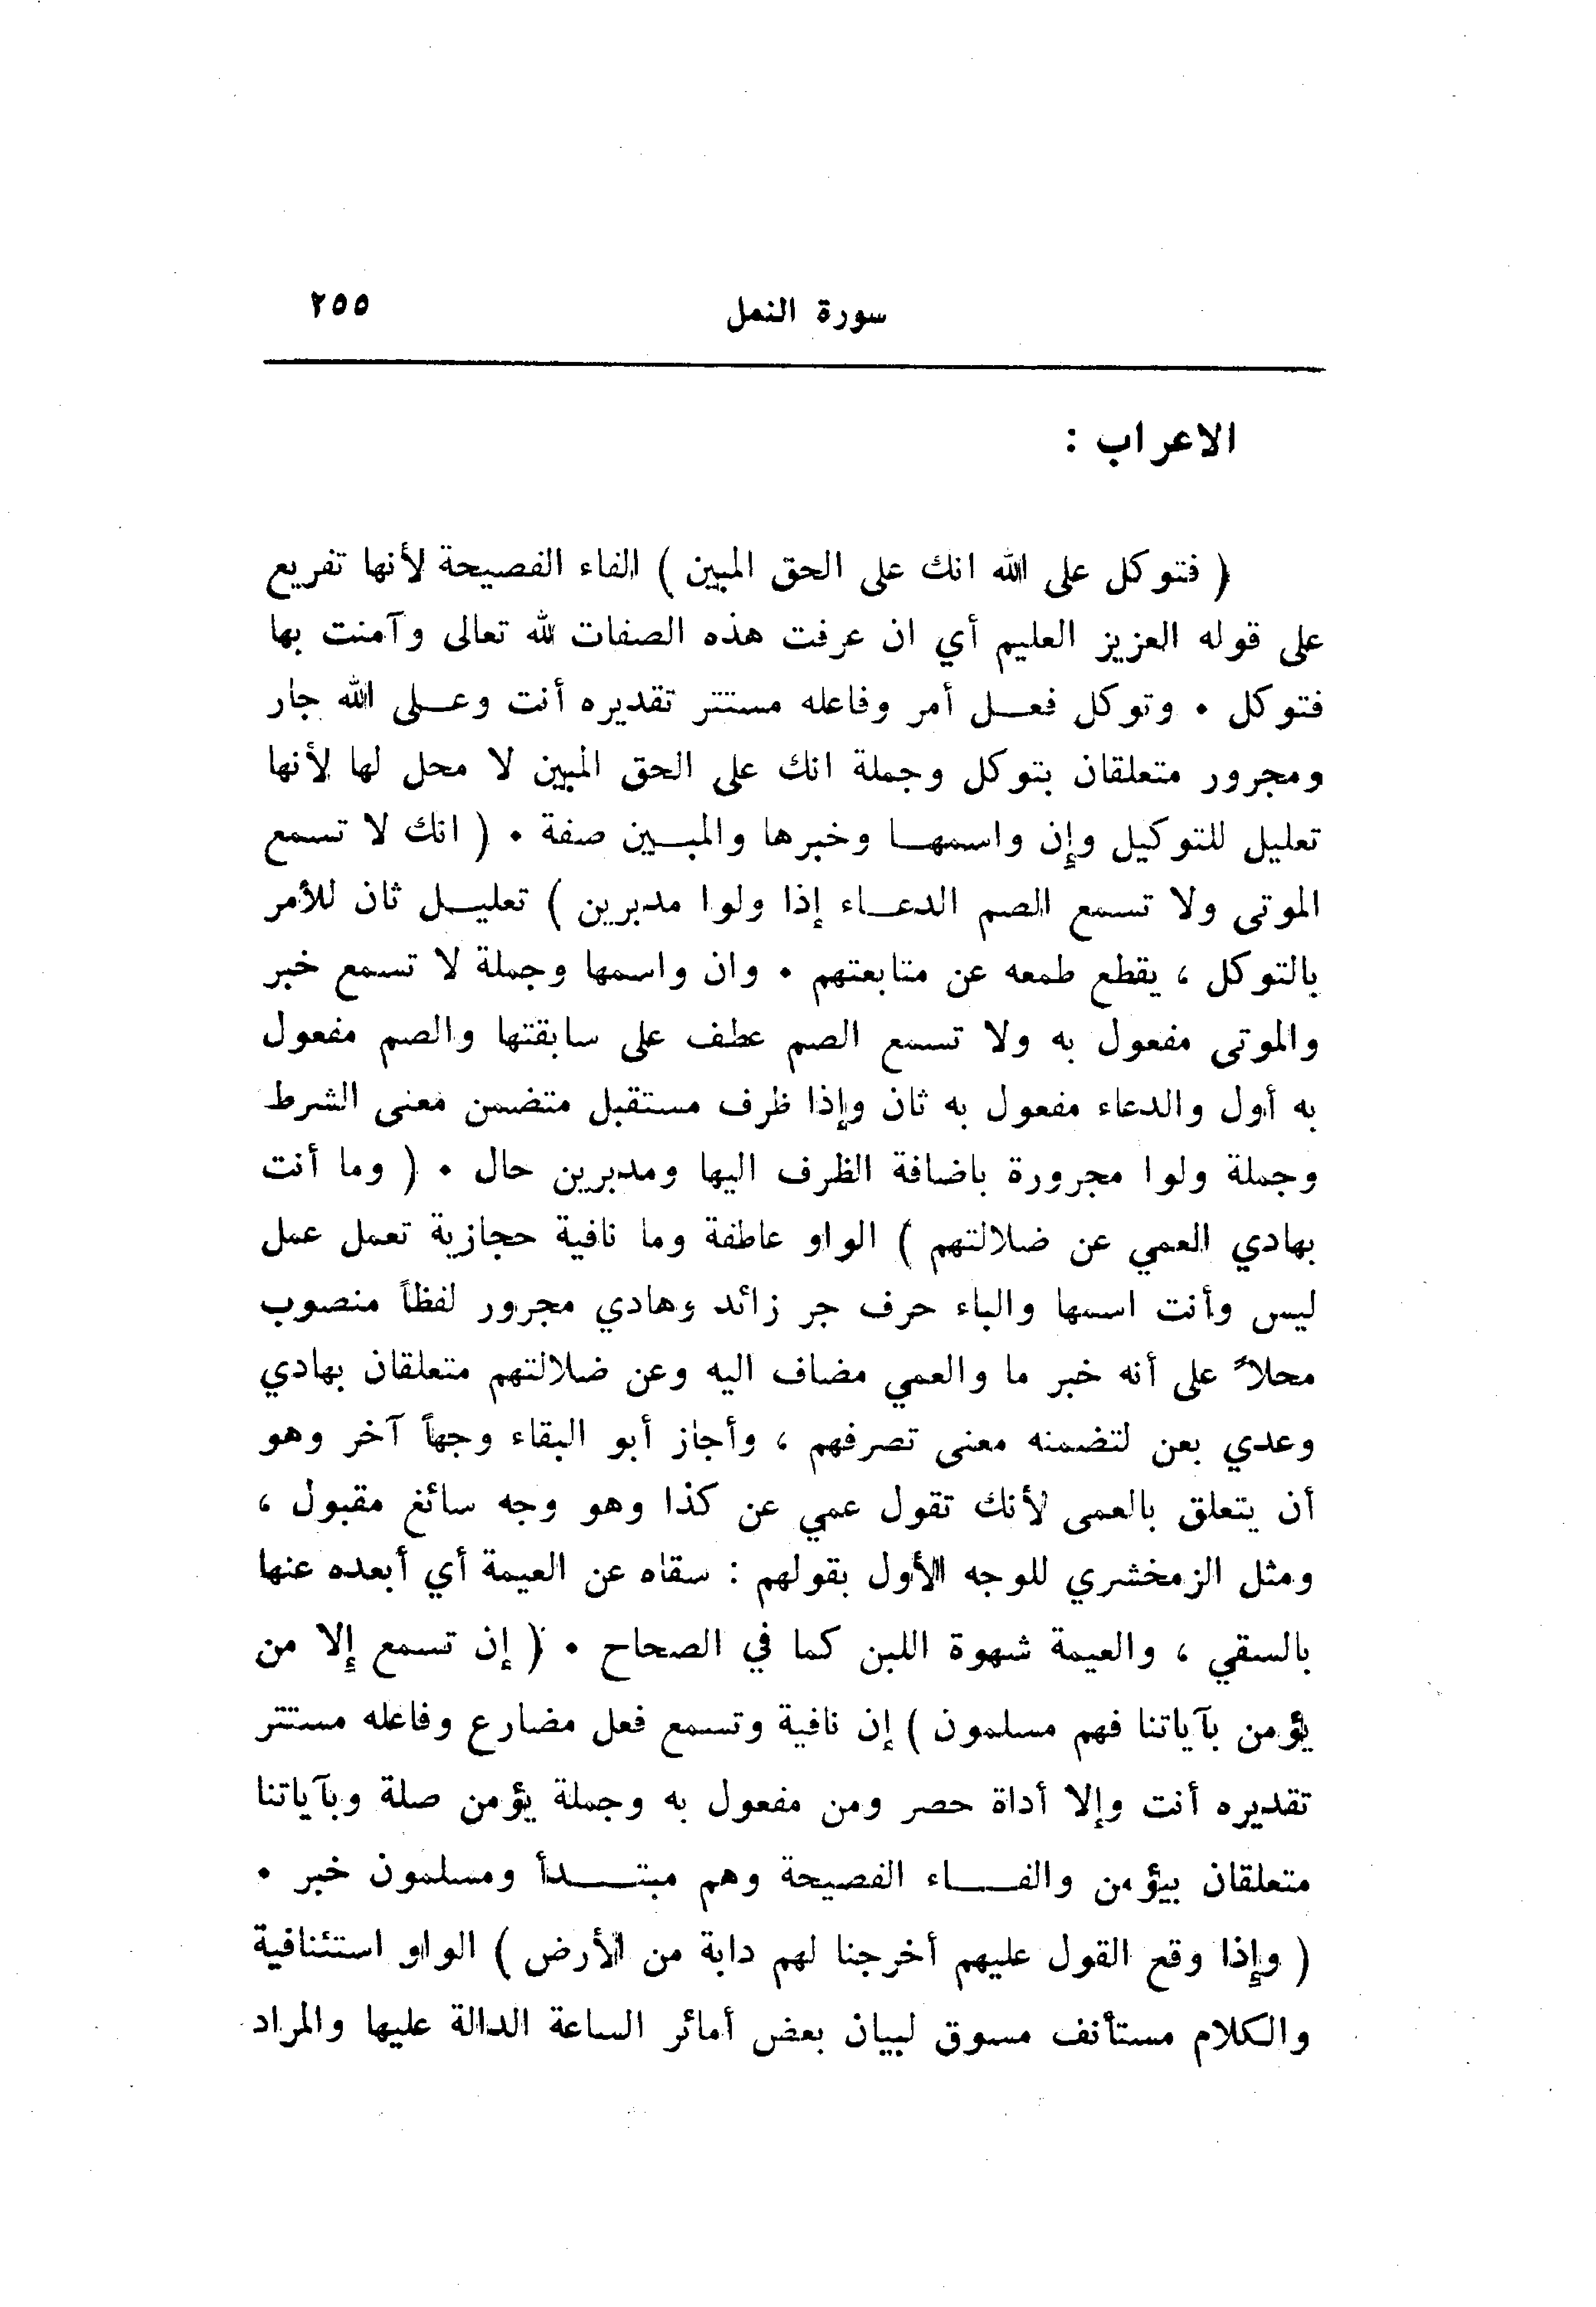 سورة النمل ٢٥٥
الاعراب :
( فتوكل على الله انك على الحق المبين ) الفاء الفصيحة لأنها تفريع
على قوله العزيز العليم أي ان عرفت هذه الصفات لله تعالى وآمنت بها
فتوكل ٠ وتوكل فعـــل أمر وفاعله مستتر تقديره أنت وعـــلى الله جار
ومجرور متعلقان بتوكل وجملة انك على الحق المبين لا محل لها لأنها
تعليل للتوكيل وإن واسمهـــا وخبرها والمبـــين صفة ٠ ( انك لا تسمع
الموتى ولا تسمع الصم الدعـــاء إذا ولوا مدبرين ) تعليـــل ثان للأمر
بالتوكل ، يقطع طمعه عن متابعتهم ٠ وان واسمها وجملة لا تسمع خبر
والموتى مفعول به ولا تسمع الصم عطف على سابقتها والصم مفعول
به أول والدعاء مفعول به ثان وإذا ظرف مستقبل متضمن معنى الشرط
وجملة ولوا مجرورة باضافة الظرف اليها ومدبرين حال ٠ ( وما أنت
بهادي العمي عن ضلالتهم ) الواو عاطفة وما نافية حجازية تعمل عمل
ليس وأنت اسمها والباء حرف جر زائد وهادي مجرور لفظاً منصوب
محلاً على أنه خبر ما والعمي مضاف اليه وعن ضلالتهم متعلقان بهادي
وعدي بعن لتضمنه معنى تصرفهم ، وأجاز أبو البقاء وجهاً آخر وهو
أن يتعلق بالعمى لأنك تقول عمي عن كذا وهو وجه سائغ مقبول ،
ومثل الزمخشري للوجه الأول بقولهم : سقاه عن العيمة أي أبعده عنها
بالسقي ، والعيمة شهوة اللبن كما في الصحاح ٠ ( إن تسمع إلا من
يؤمن بآياتنا فهم مسلمون ) إن نافية وتسمع فعل مضارع وفاعله مستتر
تقديره أنت وإلا أداة حصر ومن مفعول به وجملة يؤمن صلة وبآياتنا
متعلقان بيؤمن والفـــاء الفصيحة وهم مبتـــدأ ومسلمون خبر ٠
( وإذا وقع القول عليهم أخرجنا لهم دابة من الأرض ) الواو استئنافية
والكلام مستأنف مسوق لبيان بعض أمائر الساعة الدالة عليها والمراد